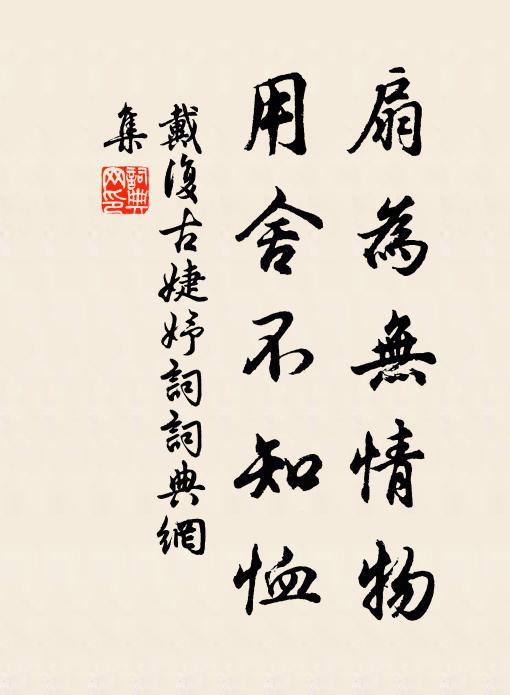 扇為無情物
用舍不知恤
戴復古婕妤詞詞典網
集
詞典網印